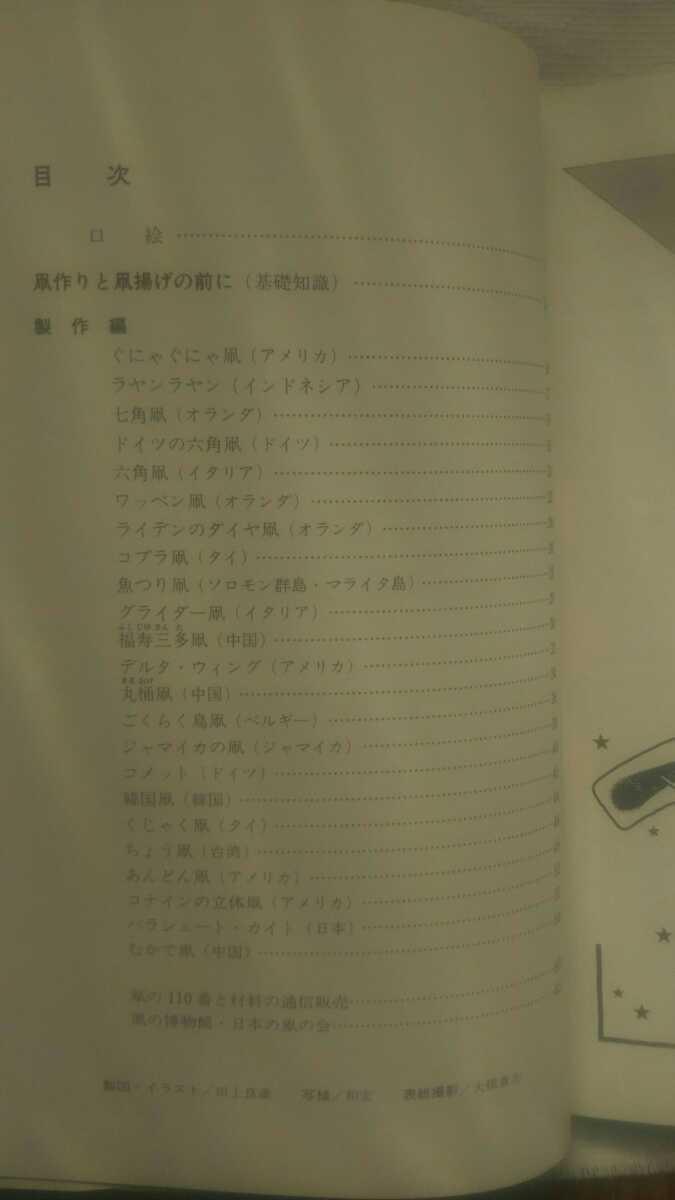 目 次
口 絵
凧作りと凧揚げの前に(基礎知識)
製 作 編
ぐにゃぐにゃ凧(アメリカ)
ラヤンラヤン(インドネシア)
七角凧(オランダ)
ドイツの六角凧(ドイツ)
六角凧(イタリア)
ワッペン凧(オランダ)
ライデンのダイヤ凧(オランダ)
コブラ凧(タイ)
魚つり凧(ソロモン群島・マライタ島)
グライダー凧(イタリア)
福寿三多凧(中国)
デルタ・ウィング(アメリカ)
丸桶凧(中国)
ごくらく鳥凧(ベルギー)
ジャマイカの凧(ジャマイカ)
コメット(ドイツ)
韓国凧(韓国)
くじゃく凧(タイ)
ちょう凧(台湾)
あんどん凧(アメリカ)
コナインの立体凧(アメリカ)
パラシュート・カイト(日本)
むかで凧(中国)
凧の110番と材料の通信販売
凧の博物館・日本の凧の会
製図・イラスト/ 写植/ 表紙撮影/